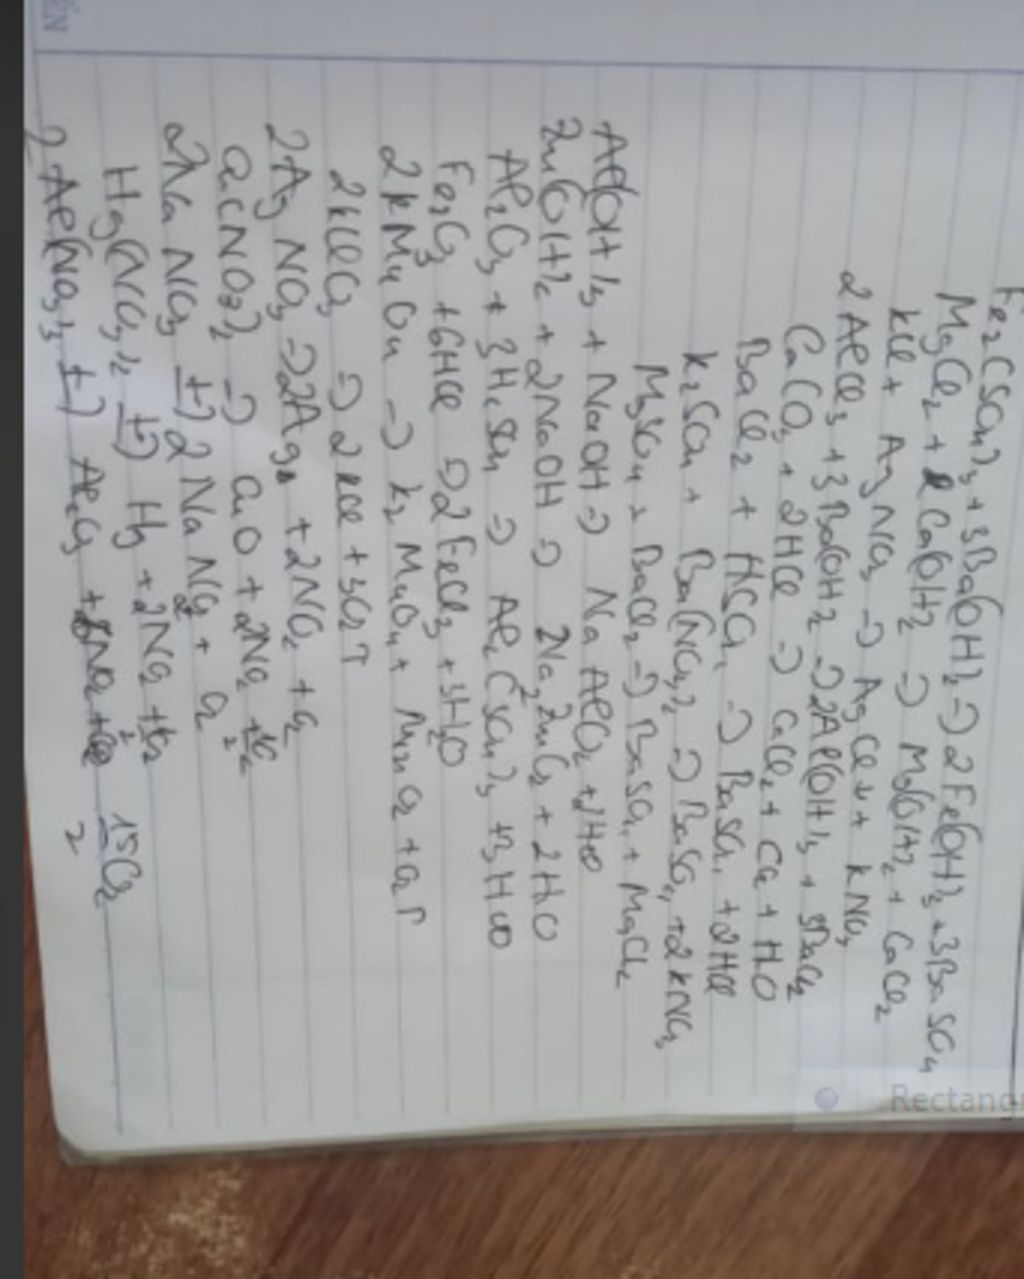 Fe₂(SO₄)₃ + 3Ba(OH)₂ => 2Fe(OH)₃ + 3BaSO₄
MgCl₂ + Ca(OH)₂ => Mg(OH)₂ + CaCl₂
KCl + AgNO₃ => AgCl↓ + KNO₃
2AlCl₃ + 3Ba(OH)₂ => 2Al(OH)₃ + 3BaCl₂
CaCO₃ + 2HCl => CaCl₂ + CO₂ + H₂O
BaCl₂ + H₂SO₄ => BaSO₄ + 2HCl
K₂SO₄ + Ba(NO₃)₂ => BaSO₄ + 2KNO₃
MgSO₄ + BaCl₂ => BaSO₄ + MgCl₂
Al(OH)₃ + NaOH => NaAlO₂ + 2H₂O
Zn(OH)₂ + 2NaOH => Na₂ZnO₂ + 2H₂O
Al₂O₃ + 3H₂SO₄ => Al₂(SO₄)₃ + 3H₂O
Fe₂O₃ + 6HCl => 2FeCl₃ + 3H₂O
2KMnO₄ => K₂MnO₄ + MnO₂ + O₂↑
2KClO₃ => 2KCl + 3O₂↑
2AgNO₃ => 2Ag + 2NO₂ + O₂
Cu(NO₃)₂ => CuO + 2NO₂ + ½O₂
2NaNO₃ t=> 2NaNO₂ + O₂
Hg(NO₃)₂ t=> Hg + 2NO₂ + O₂
2Al(NO₃)₃ t=> Al₂O₃ + NO₂ + 15/2 O₂
ÉN
Rectang